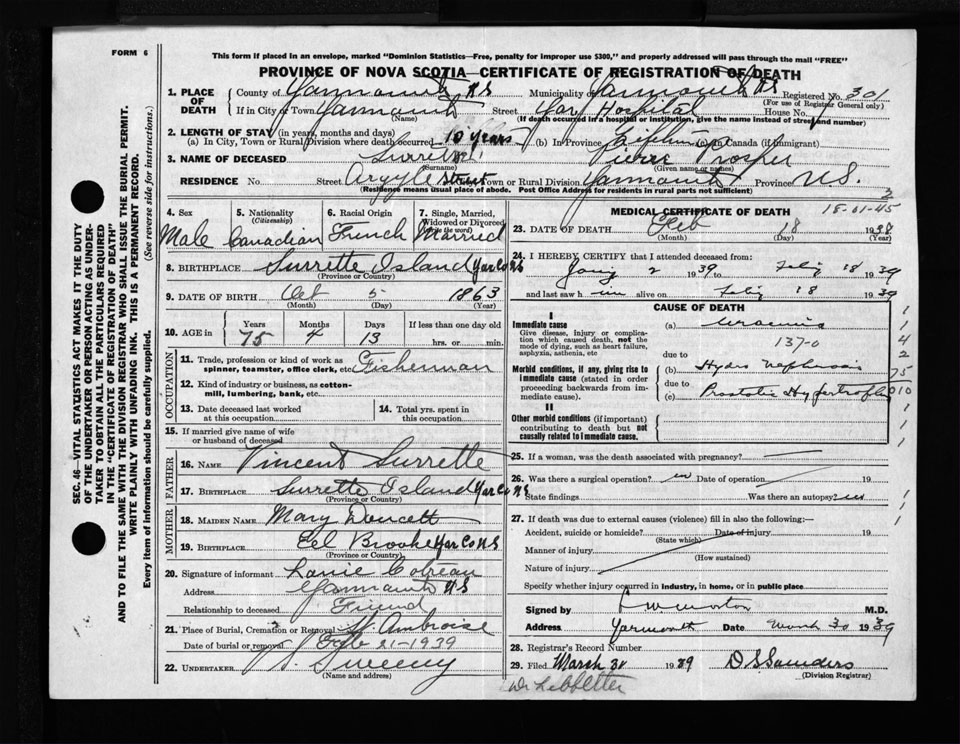 FORM 6
This form if placed in an envelope, marked "Dominion Statistics—Free, penalty for improper use $300," and properly addressed will pass through the mail "FREE"
PROVINCE OF NOVA SCOTIA—CERTIFICATE OF REGISTRATION OF DEATH
1. PLACE OF DEATH County of Yarmouth NS Municipality Yarmouth NS Registered No. 301
(For use of Registrar General only)
If in City or Town Yarmouth Street Yar Hospital House No.
(Name) (If death occurred in a hospital or institution, give the name instead of street and number)
2. LENGTH OF STAY (in years, months and days)
(a) In City, Town or Rural Division where death occurred 10 years (b) In Province In Canada (if immigrant)
3. NAME OF DECEASED Surrette Pierre Prosper
(Surname) (Given name or names)
RESIDENCE No. Street Argyle Street Town or Rural Division Yarmouth Province N.S.
(Residence means usual place of abode. Post Office Address for residents in rural parts not sufficient)
3
4. Sex 5. Nationality (Citizenship) 6. Racial Origin 7. Single, Married, Widowed or Divorced (Write the word)
Male Canadian French Married
8. BIRTHPLACE Surrette Island Yar Co NS
(Province or Country)
9. DATE OF BIRTH Oct 5 1863
(Month) (Day) (Year)
10. AGE in Years Months Days If less than one day old
75 4 13 hrs. or min.
OCCUPATION
11. Trade, profession or kind of work as spinner, teamster, office clerk, etc. Fisherman
12. Kind of industry or business, as cotton-mill, lumbering, bank, etc.
13. Date deceased last worked at this occupation
14. Total yrs. spent in this occupation
15. If married give name of wife or husband of deceased
FATHER
16. NAME Vincent Surrette
17. BIRTHPLACE Surrette Island Yar Co NS
(Province or Country)
MOTHER
18. MAIDEN NAME Mary Doucett
19. BIRTHPLACE Eel Brooke Yar Co NS
(Province or Country)
20. Signature of informant
Address Yarmouth NS
Relationship to deceased Friend
21. Place of Burial, Cremation or Removal St. Ambroise
Date of burial or removal Feb 21-1939
22. UNDERTAKER Sweeny
(Name and address)
MEDICAL CERTIFICATE OF DEATH 18-01-45
23. DATE OF DEATH Feb 18 1939
(Month) (Day) (Year)
24. I HEREBY CERTIFY that I attended deceased from:
2 1939 to 18 1939
and last saw h im alive on 18 1939
CAUSE OF DEATH
I
Immediate cause (a) Uraemia
Give disease, injury or complication which caused death, not the mode of dying, such as heart failure, asphyxia, asthenia, etc
137-0
due to
Morbid conditions, if any, giving rise to immediate cause (stated in order proceeding backwards from immediate cause).
(b) Hydro Nephrosis
due to
(c) Prostatic Hypertrophy
II
Other morbid conditions (if important) contributing to death but not causally related to immediate cause.
25. If a woman, was the death associated with pregnancy?
26. Was there a surgical operation? no Date of operation 19
State findings Was there an autopsy? no
27. If death was due to external causes (violence) fill in also the following:—
Accident, suicide or homicide? Date of injury 19
(State which)
Manner of injury
(How sustained)
Nature of injury
Specify whether injury occurred in industry, in home, or in public place
Signed by M.D.
Address Yarmouth Date March 30 1939
28. Registrar's Record Number
29. Filed March 31 1939 D S Saunders
(Division Registrar)
SEC. 46—VITAL STATISTICS ACT MAKES IT THE DUTY
OF THE UNDERTAKER OR PERSON ACTING AS UNDER-
TAKER TO OBTAIN ALL THE PARTICULARS REQUIRED
IN THE "CERTIFICATE OF REGISTRATION OF DEATH"
AND TO FILE THE SAME WITH THE DIVISION REGISTRAR WHO SHALL ISSUE THE BURIAL PERMIT.
WRITE PLAINLY WITH UNFADING INK. THIS IS A PERMANENT RECORD.
Every item of information should be carefully supplied. (See reverse side for instructions.)